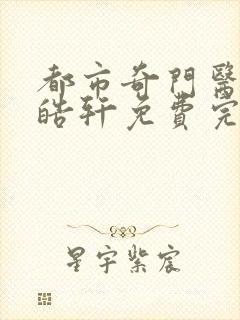 都市奇門醫
皓軒免費完
星宇紫宸